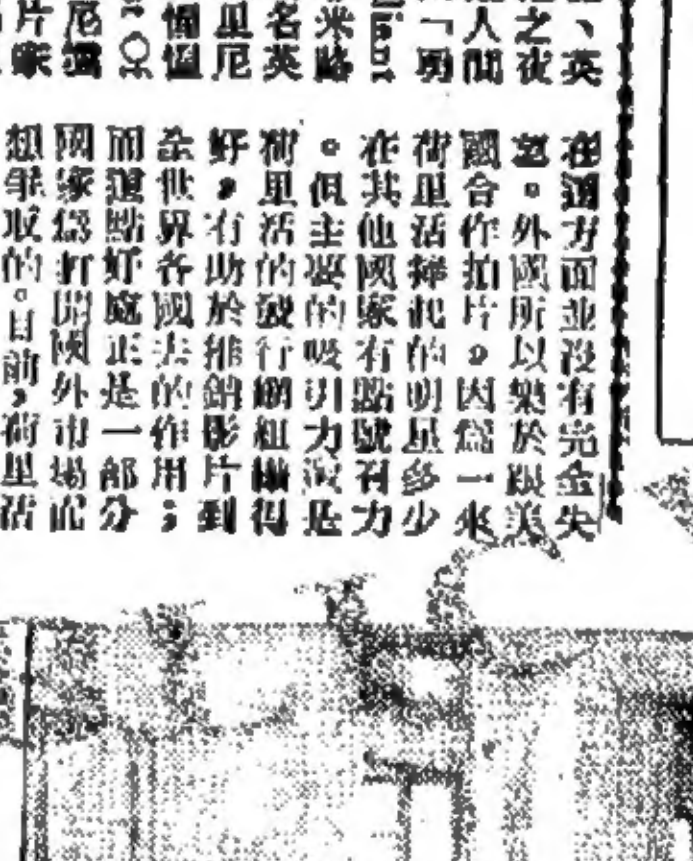 、英
之夜
人間
「明
米路
名英
里厄
片
在這方面並沒有完全失
望。外國所以樂於跟美
國合作拍片。因爲一來
荷里活捧起的明星多少
在其他國家有點號召力
。但主要的吸引力還是
荷里活的發行網組織得
好,有助於推銷影片到
全世界各國去的作用;
而這點好處正是一部分
國家爲打開國外市場而
想爭取的。目前,荷里活